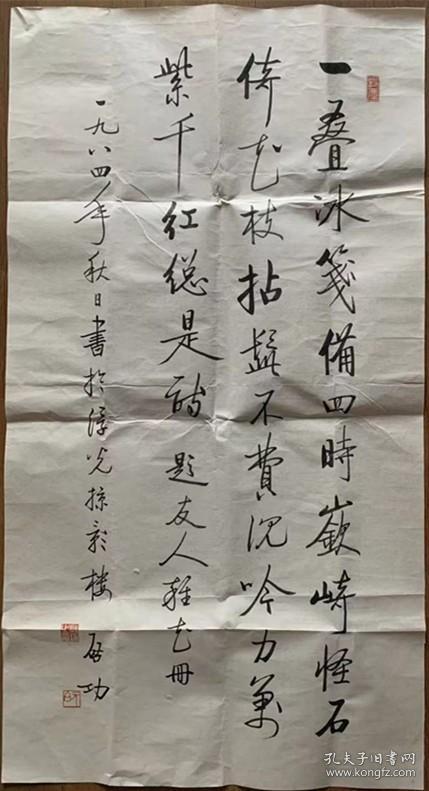 一叠冰箋備四時嶔崎怪石
倚花枝拈髭不費沉吟力萬
紫千红總是詩 題友人雜花册
一九八四年秋日書於浮光掠影樓 启功
孔夫子旧书网
www.kongfz.com